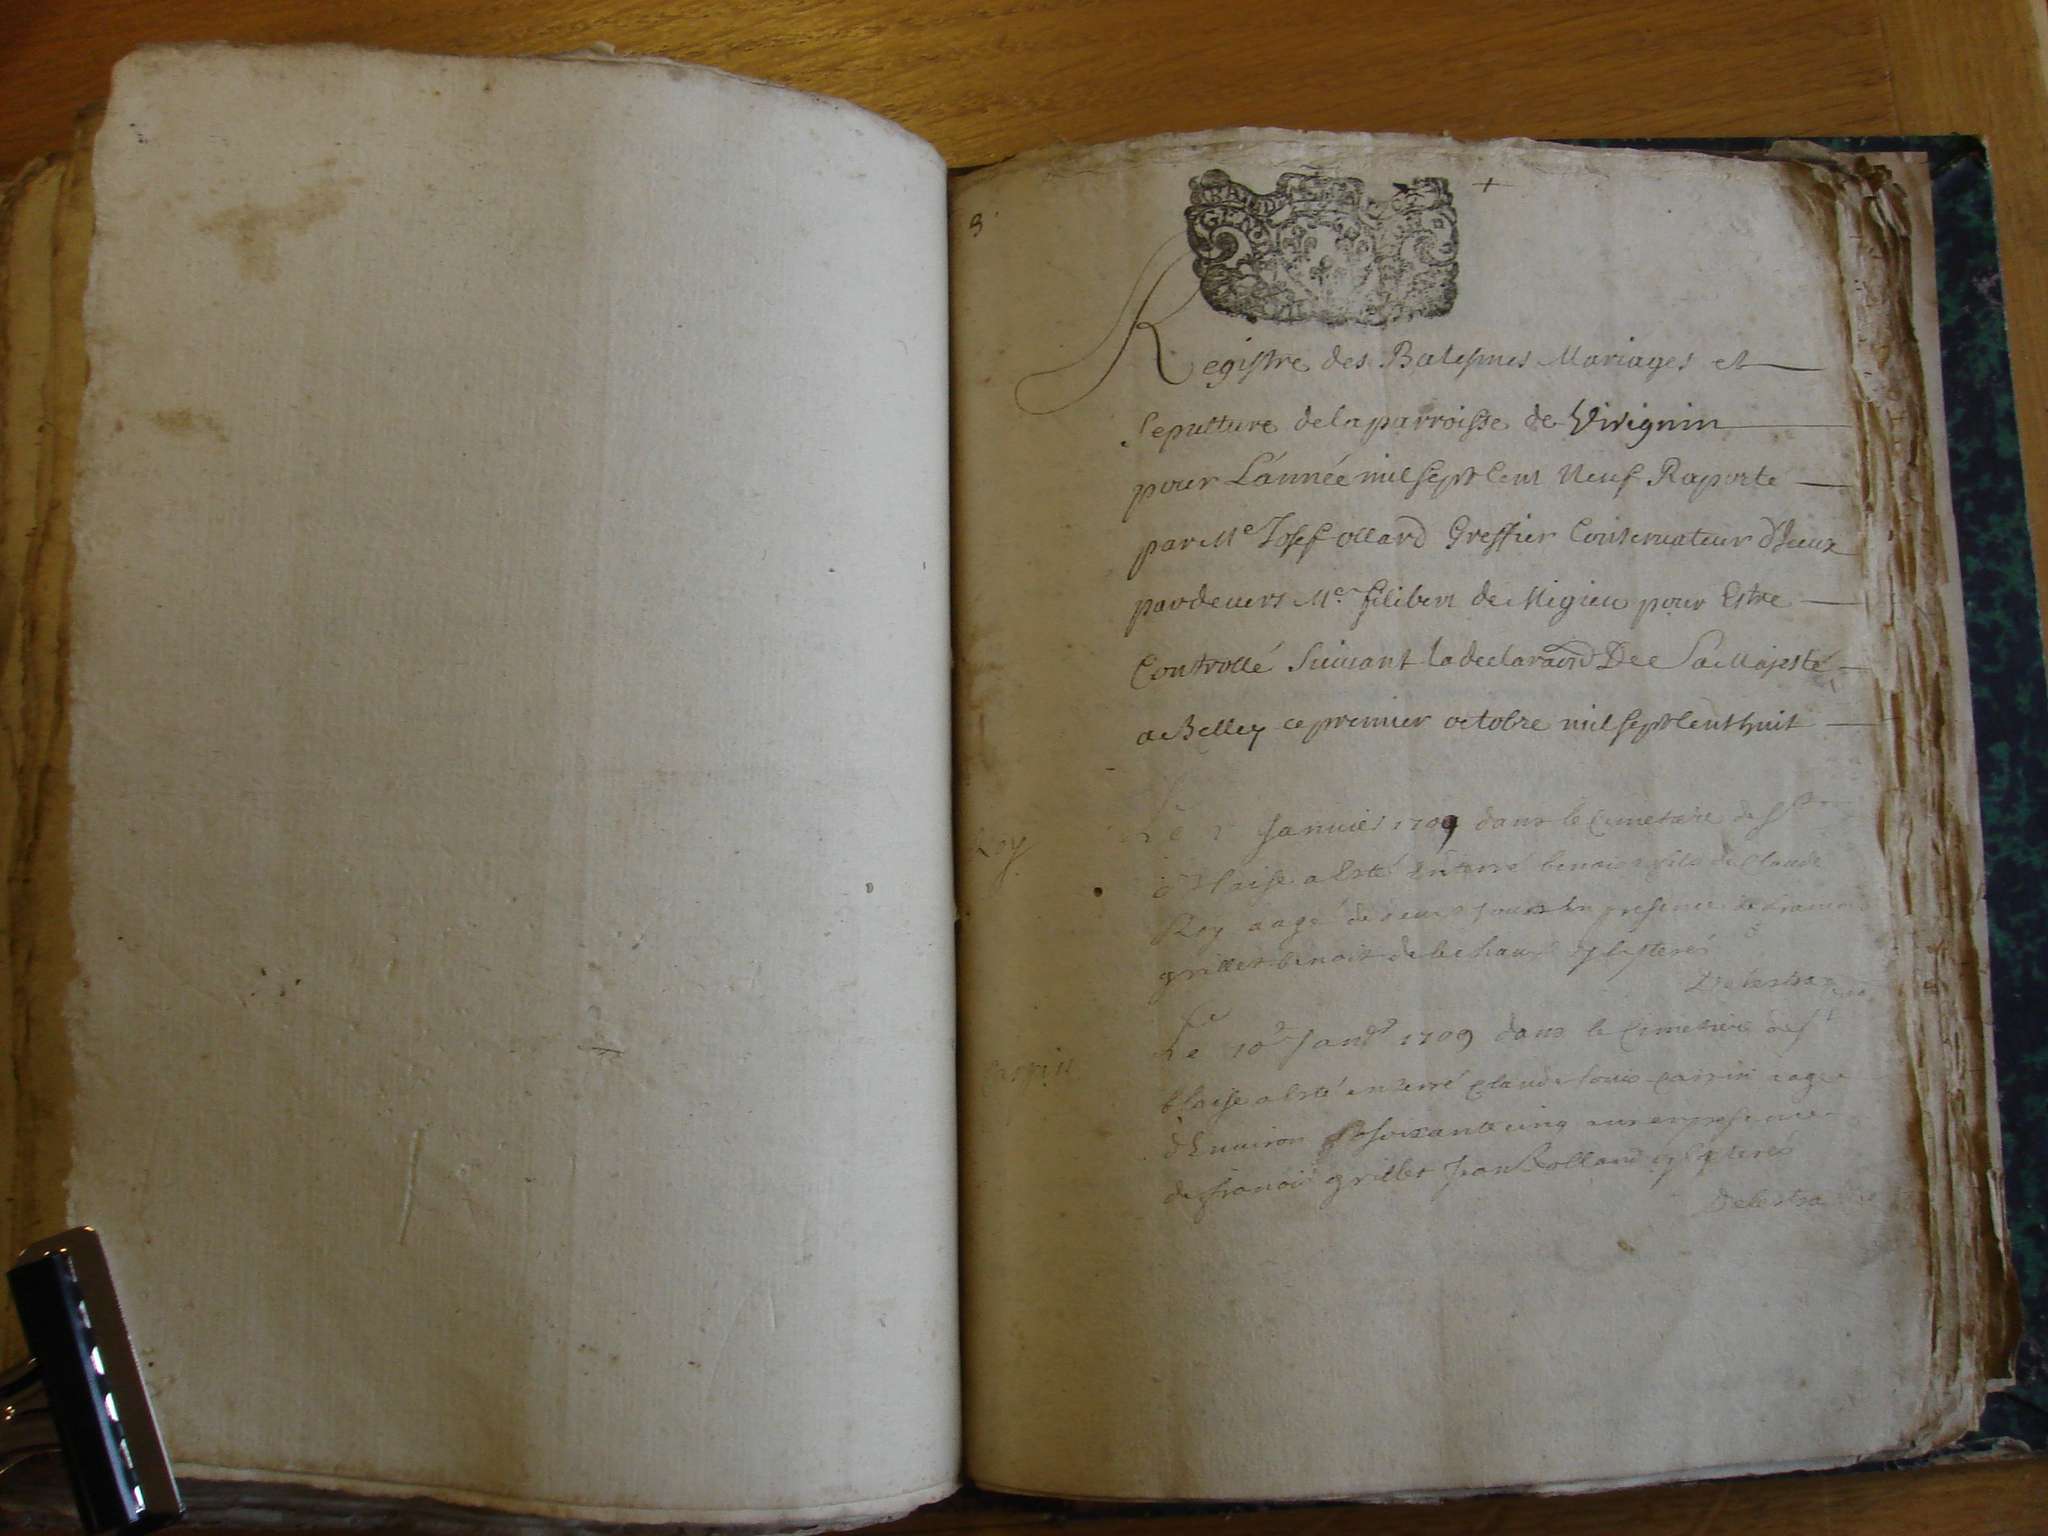 8
GEN
Registre des Batesmes Mariages et
Sepulture de la parroisse de Virignin
pour L'année mil sept Cent Neuf Raporté
par Me Josef ollard Greffier Conservateur d'Iceux
pardevers Me. filibert de Migieu pour Estre
Controllé Suivant la declaraon De Sa Majesté
a Belley ce premier octobre mil sept Cent huit
Roy
Le Janvier 1709 dans le Cimetiere de St
blaise a Esté Enterré benoit fils de Claude
Roy aagé de jours En presence de francois
grillet benoit de lechaux illeterés
Delestra
Caipin
Le 10e Janvr 1709 dans le Cimetiere de St
blaise a Esté enterré Claude louis Caipin aagé
d'Environ soixante cinq ans en presence
de francois grillet Jean Rolland illeterés
Delestra